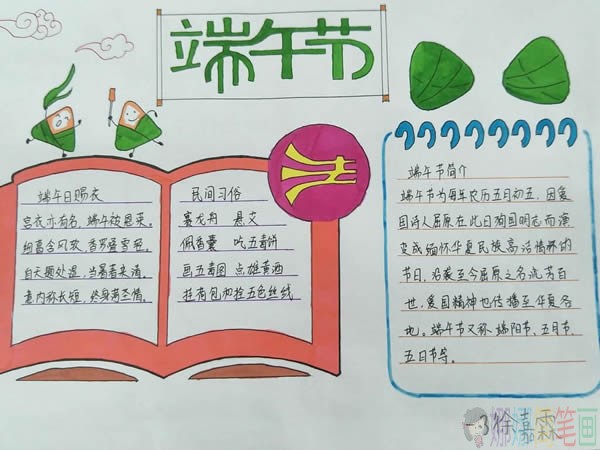 端午节
端午日赐衣
宫衣亦有名,端午被恩荣。
细葛含风软,香罗叠雪轻。
自天题处湿,当暑着来清。
意内称长短,终身荷圣情。
民间习俗
赛龙舟 悬艾
佩香囊 吃五毒饼
画五毒图 点雄黄酒
挂荷包和拴五色丝线
端午节简介
端午节为每年农历五月初五,因爱
国诗人屈原在此日殉国明志而演
变成缅怀华夏民族高洁情怀的
节日,沿袭至今屈原之名流芳百
世,爱国精神也传播至华夏各
地。端午节又称端阳节、五月节、
五日节等。
一3徐嘉霖
笔画